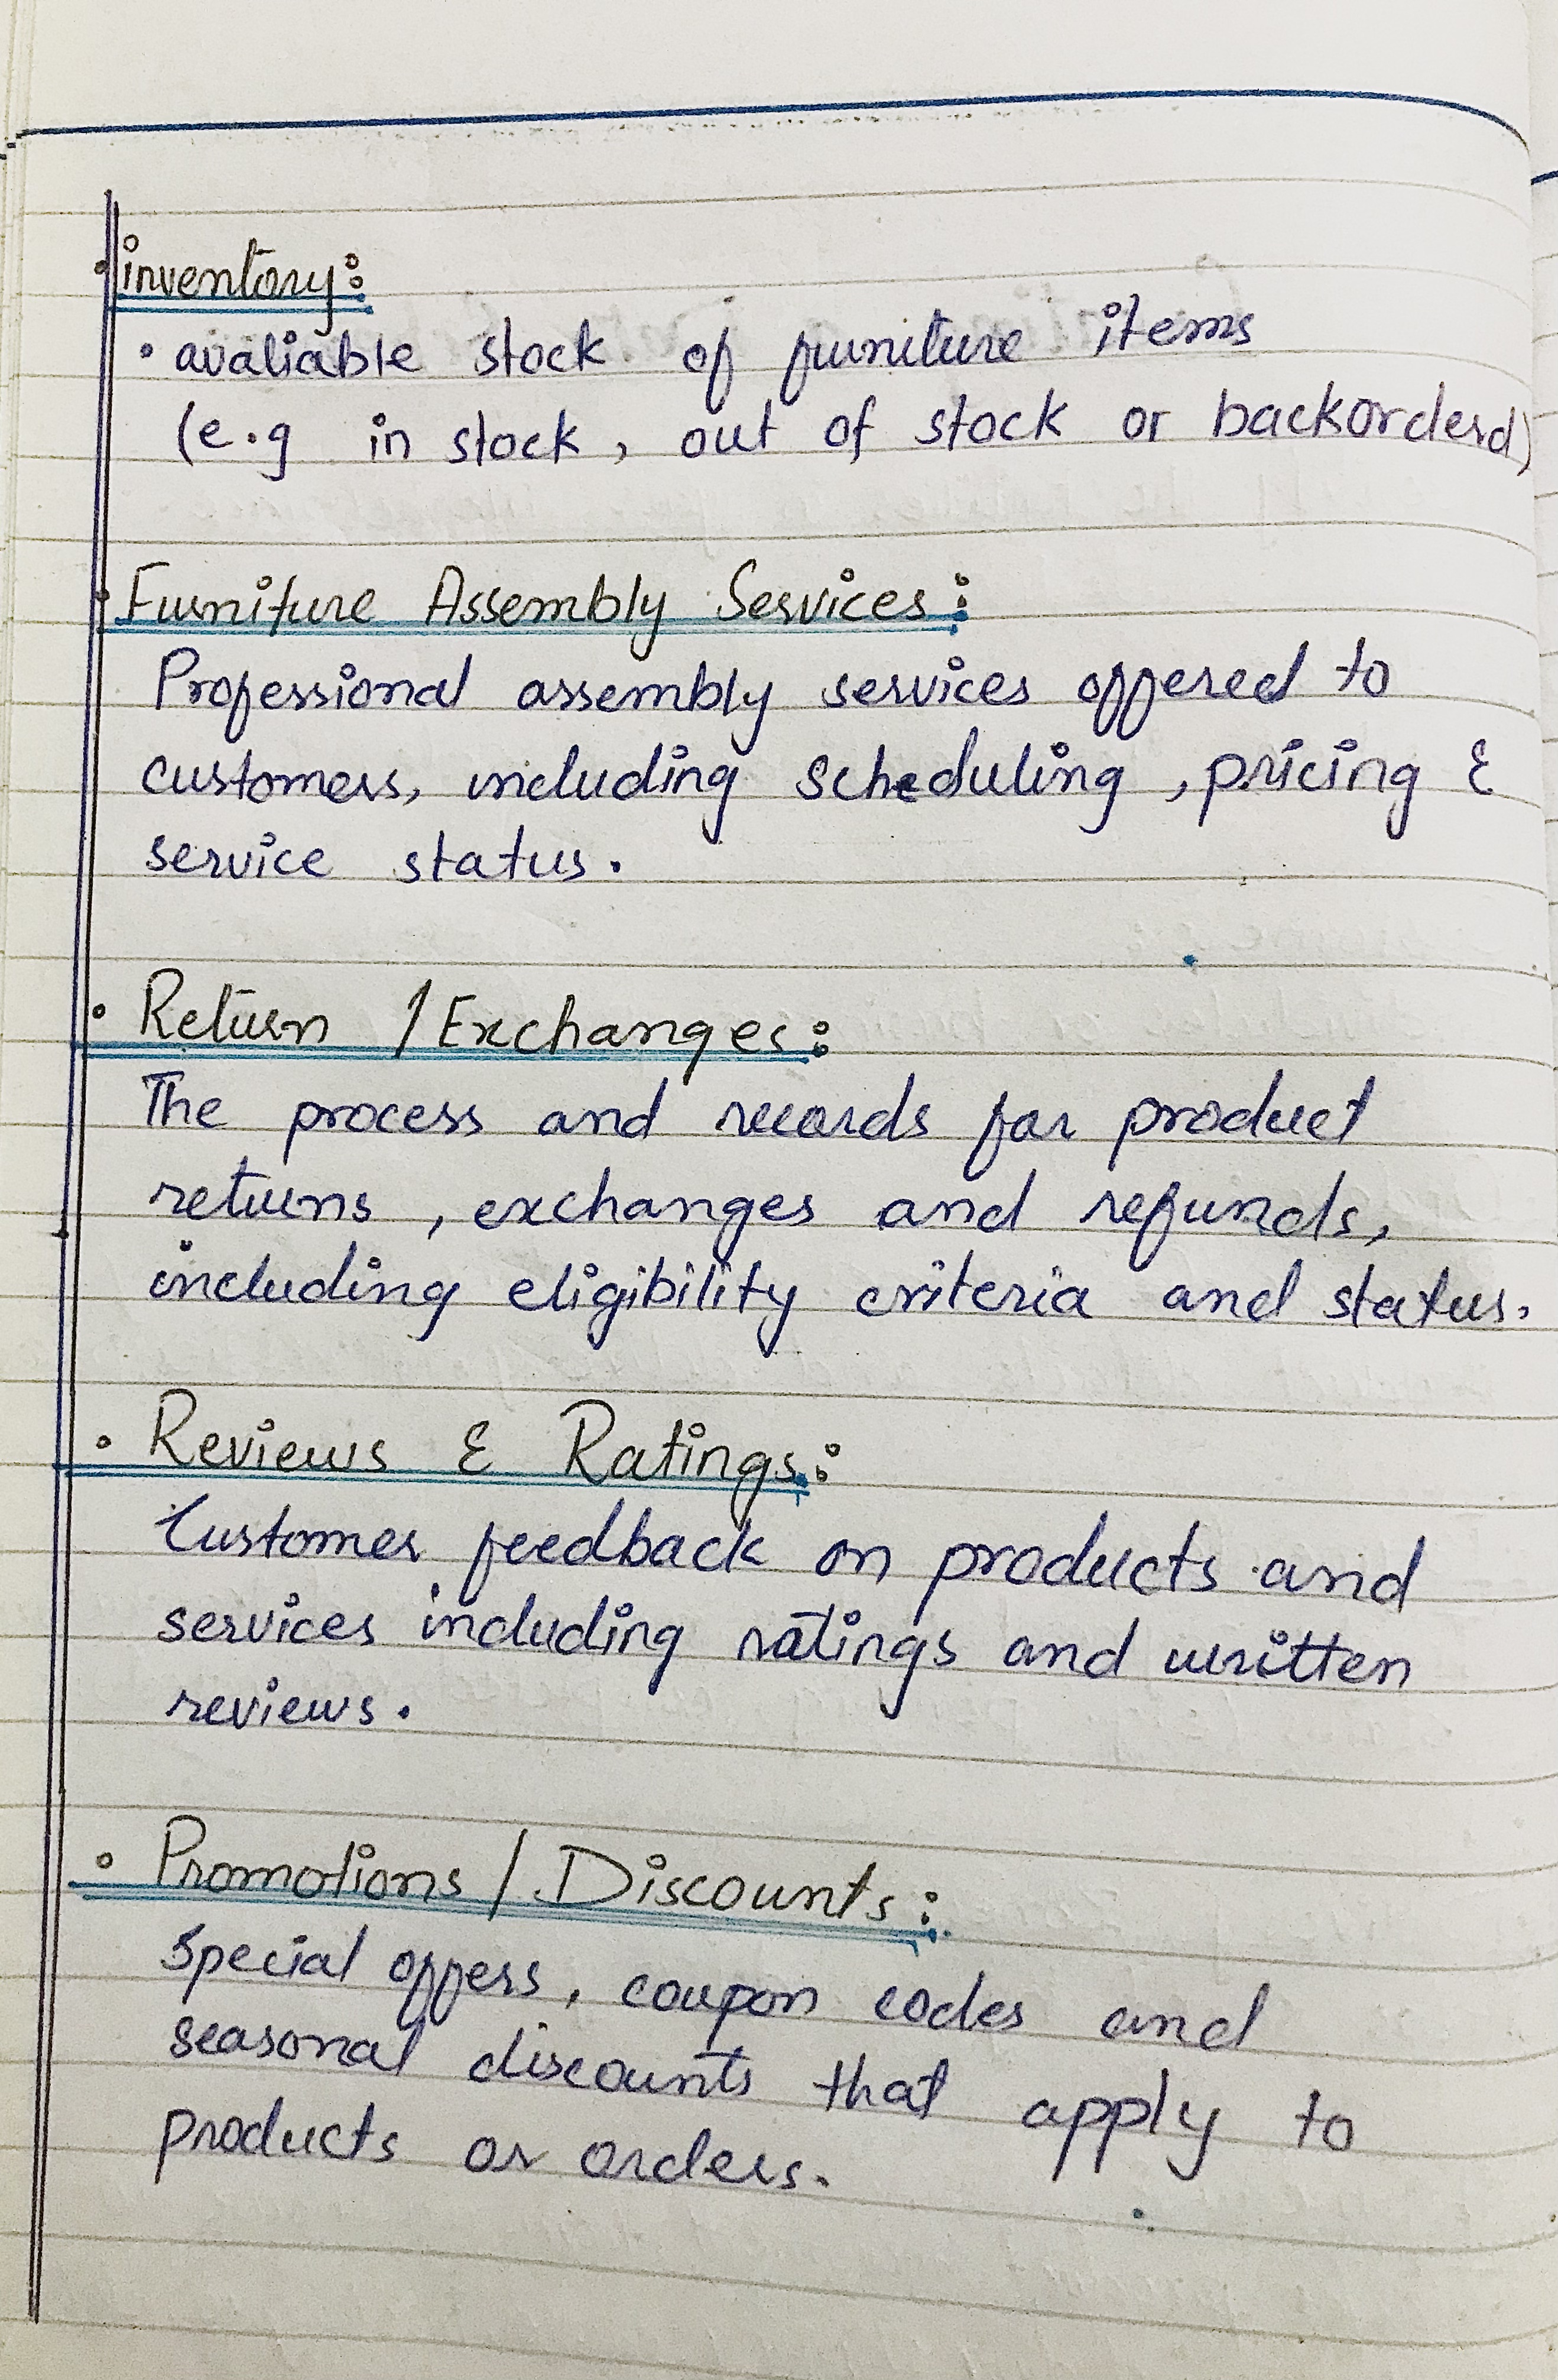 • inventory:
• avaliable stock of furniture items
(e.g in stock, out of stock or backorderd)
• Furniture Assembly Services:
Professional assembly services offered to
customers, including scheduling, pricing &
service status.
• Return / Exchanges:
The process and records for product
returns, exchanges and refunds,
including eligibility criteria and status.
• Reviews & Ratings:
Customer feedback on products and
services including ratings and written
reviews.
• Promotions / Discounts:
Special offers, coupon codes and
seasonal discounts that apply to
products or orders.